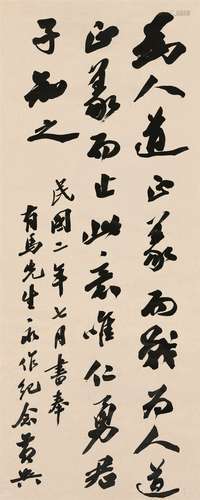 为人道正義而戰为人道
正義而止此意唯仁勇君
子知之
民國二年七月書奉
有馬先生永作紀念 黄興